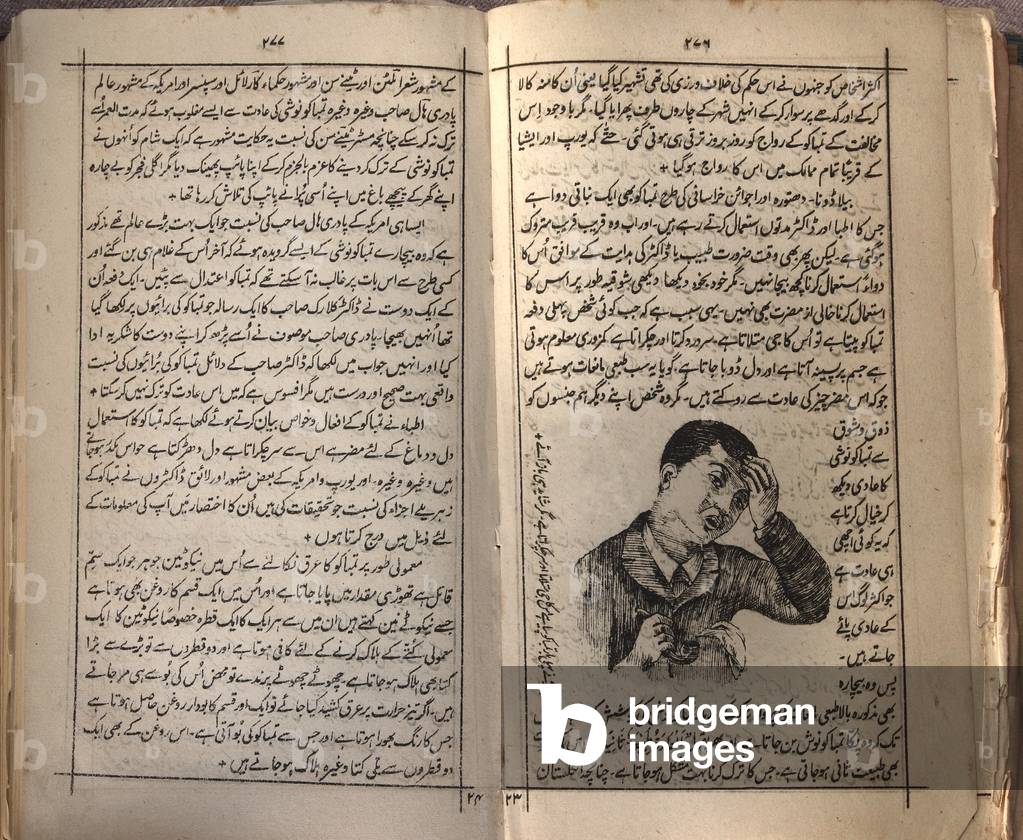 ۲۷۶
اکثر اشخاص کو جنہوں نے اس حکم کی خلاف ورزی کی تھی تشہیر کیا گیا یعنی اُن کا منہ کالا
کرکے اور گدھے پر سوار کرکے انہیں شہر کے چاروں طرف پھرایا گیا۔ مگر باوجود اِس
مخالفت کے تمباکو کے رواج کو روز بروز ترقی ہی ہوتی گئی۔ حتٰے کہ یورپ اور ایشیا
کے قریباً تمام ممالک میں اس کا رواج ہوگیا +
بیلاڈونا۔ دھتورہ اور اجوائن خراسانی کی طرح تمباکو بھی ایک نباتی دوا ہے
جس کا اطبا اور ڈاکٹر مدتوں استعمال کرتے رہے ہیں۔ اور اب وہ قریب قریب متروک
ہوگئی ہے۔ لیکن پھر بھی وقت ضرورت طبیب یا ڈاکٹر کی ہدایت کے موافق اُس کا
دواءً استعمال کرنا کچھ بیجا نہیں۔ مگر خود بخود دیکھا دیکھی شوقیہ طور پر اس کا
استعمال کرنا خالی از مضرت بھی نہیں۔ یہی سبب ہے کہ جب کوئی شخص پہلی دفعہ
تمباکو پیتا ہے تو اُس کا جی متلاتا ہے۔ سر درد کرتا اور چکراتا ہے کمزوری معلوم ہوتی
ہے جسم پر پسینہ آتا ہے اور دل ڈوبا جاتا ہے۔ گویا یہ سب طبعی مانعات ہوتے ہیں
جو کہ اس مضر چیز کی عادت سے روکتے ہیں۔ مگر وہ شخص اپنے دیگر ہم جنسوں کو
ذوق و شوق
سے تمباکو نوشی
کا عادی دیکھ
کر خیال کرتا ہے
کہ یہ کوئی اچھی
ہی عادت ہے
جو اکثر لوگ اس
کے عادی پائے
جاتے ہیں۔
پس وہ بیچارہ
بھی مذکورہ بالا طبعی
تک کہ وہ پکا تمباکو نوش بن جاتا ہے
بھی طبیعت ثانی ہوجاتی ہے۔ جس کا ترک کرنا بہت مشکل ہوجاتا ہے۔ چنانچہ انگلستان
۲۳
۲۷۷
کے مشہور شعرا ملٹن اور ٹینے سن اور مشہور حکماء کارلائل اور سپنسر اور امریکہ کے مشہور عالم
پادری ہال صاحب وغیرہ وغیرہ تمباکو نوشی کی عادت سے ایسے مغلوب ہوئے کہ مدت العمر اسے
ترک نہ کرسکے چنانچہ مسٹر ٹینے سن کی نسبت یہ حکایت مشہور ہے کہ ایک شام کو اُنہوں نے
تمباکو نوشی کے ترک کر دینے کا عزم بالجزم کرکے اپنا پائپ پھینک دیا مگر اگلی فجر کو بے چارہ
اپنے گھر کے پیچھے باغ میں اپنے اُسی پُرانے پائپ کی تلاش کر رہا تھا +
ایسا ہی امریکہ کے پادری ہال صاحب کی نسبت جو ایک بہت بڑے عالم تھے مذکور
ہے کہ وہ بیچارے تمباکو نوشی کے ایسے گرویدہ ہوئے کہ آخر اُس کے غلام ہی بن گئے اور
کسی طرح سے اس بات پر غالب نہ آسکتے تھے کہ تمباکو اعتدال سے پئیں۔ ایک دفعہ اُن
کے ایک دوست نے ڈاکٹر کلارک صاحب کا ایک رسالہ جو تمباکو کی برائیوں پر لکھا گیا
تھا اُنہیں بھیجا۔ پادری صاحب موصوف نے اُسے پڑھ کر اپنے دوست کا شکریہ ادا
کیا اور انہیں جواب میں لکھا کہ ڈاکٹر صاحب کے دلائل تمباکو کی بُرائیوں کی نسبت
واقعی بہت صحیح اور درست ہیں مگر افسوس ہے کہ میں اس عادت کو ترک نہیں کرسکتا +
اطباء نے تمباکو کے افعال و خواص بیان کرتے ہوئے لکھا ہے کہ تمباکو کا استعمال
دل و دماغ کے لئے مضر ہے اس سے سر چکراتا ہے دل دھڑکتا ہے حواس مکدر ہوجاتے
ہیں وغیرہ وغیرہ۔ اور یورپ و امریکہ کے بعض مشہور اور لائق ڈاکٹروں نے تمباکو کے
زہریلے اجزاء کی نسبت جو تحقیقات کی ہیں اُن کا اختصار میں آپ کی معلومات کے
لئے ذیل میں درج کرتا ہوں +
معمولی طور پر تمباکو کا عرق نکالنے سے اُس میں نیکوٹین جو ہر جو ایک سمِّ
قاتل ہے تھوڑی مقدار میں پایا جاتا ہے اور اُس میں ایک قسم کا روغن بھی ہوتا ہے
جسے نیکوٹے نین کہتے ہیں ان میں سے ہر ایک کا ایک قطرہ خصوصاً نیکوٹین کا ایک
معمولی کتے کے ہلاک کرنے کے لئے کافی ہوتا ہے اور دو قطروں سے تو بڑے سے بڑا
کتا بھی ہلاک ہوجاتا ہے۔ چھوٹے چھوٹے پرندے تو محض اُس کی بُو سے ہی مرجاتے
ہیں۔ اگر تیز حرارت پر عرق کشید کیا جائے تو ایک اور قسم کا بودار روغن حاصل ہوتا ہے
جس کا رنگ بھورا ہوتا ہے اور جس سے تمباکو کی بُو آتی ہے۔ اس روغن کے بھی ایک
دو قطروں سے بلی کتا وغیرہ ہلاک ہوجاتے ہیں +
۲۴
bridgeman
images